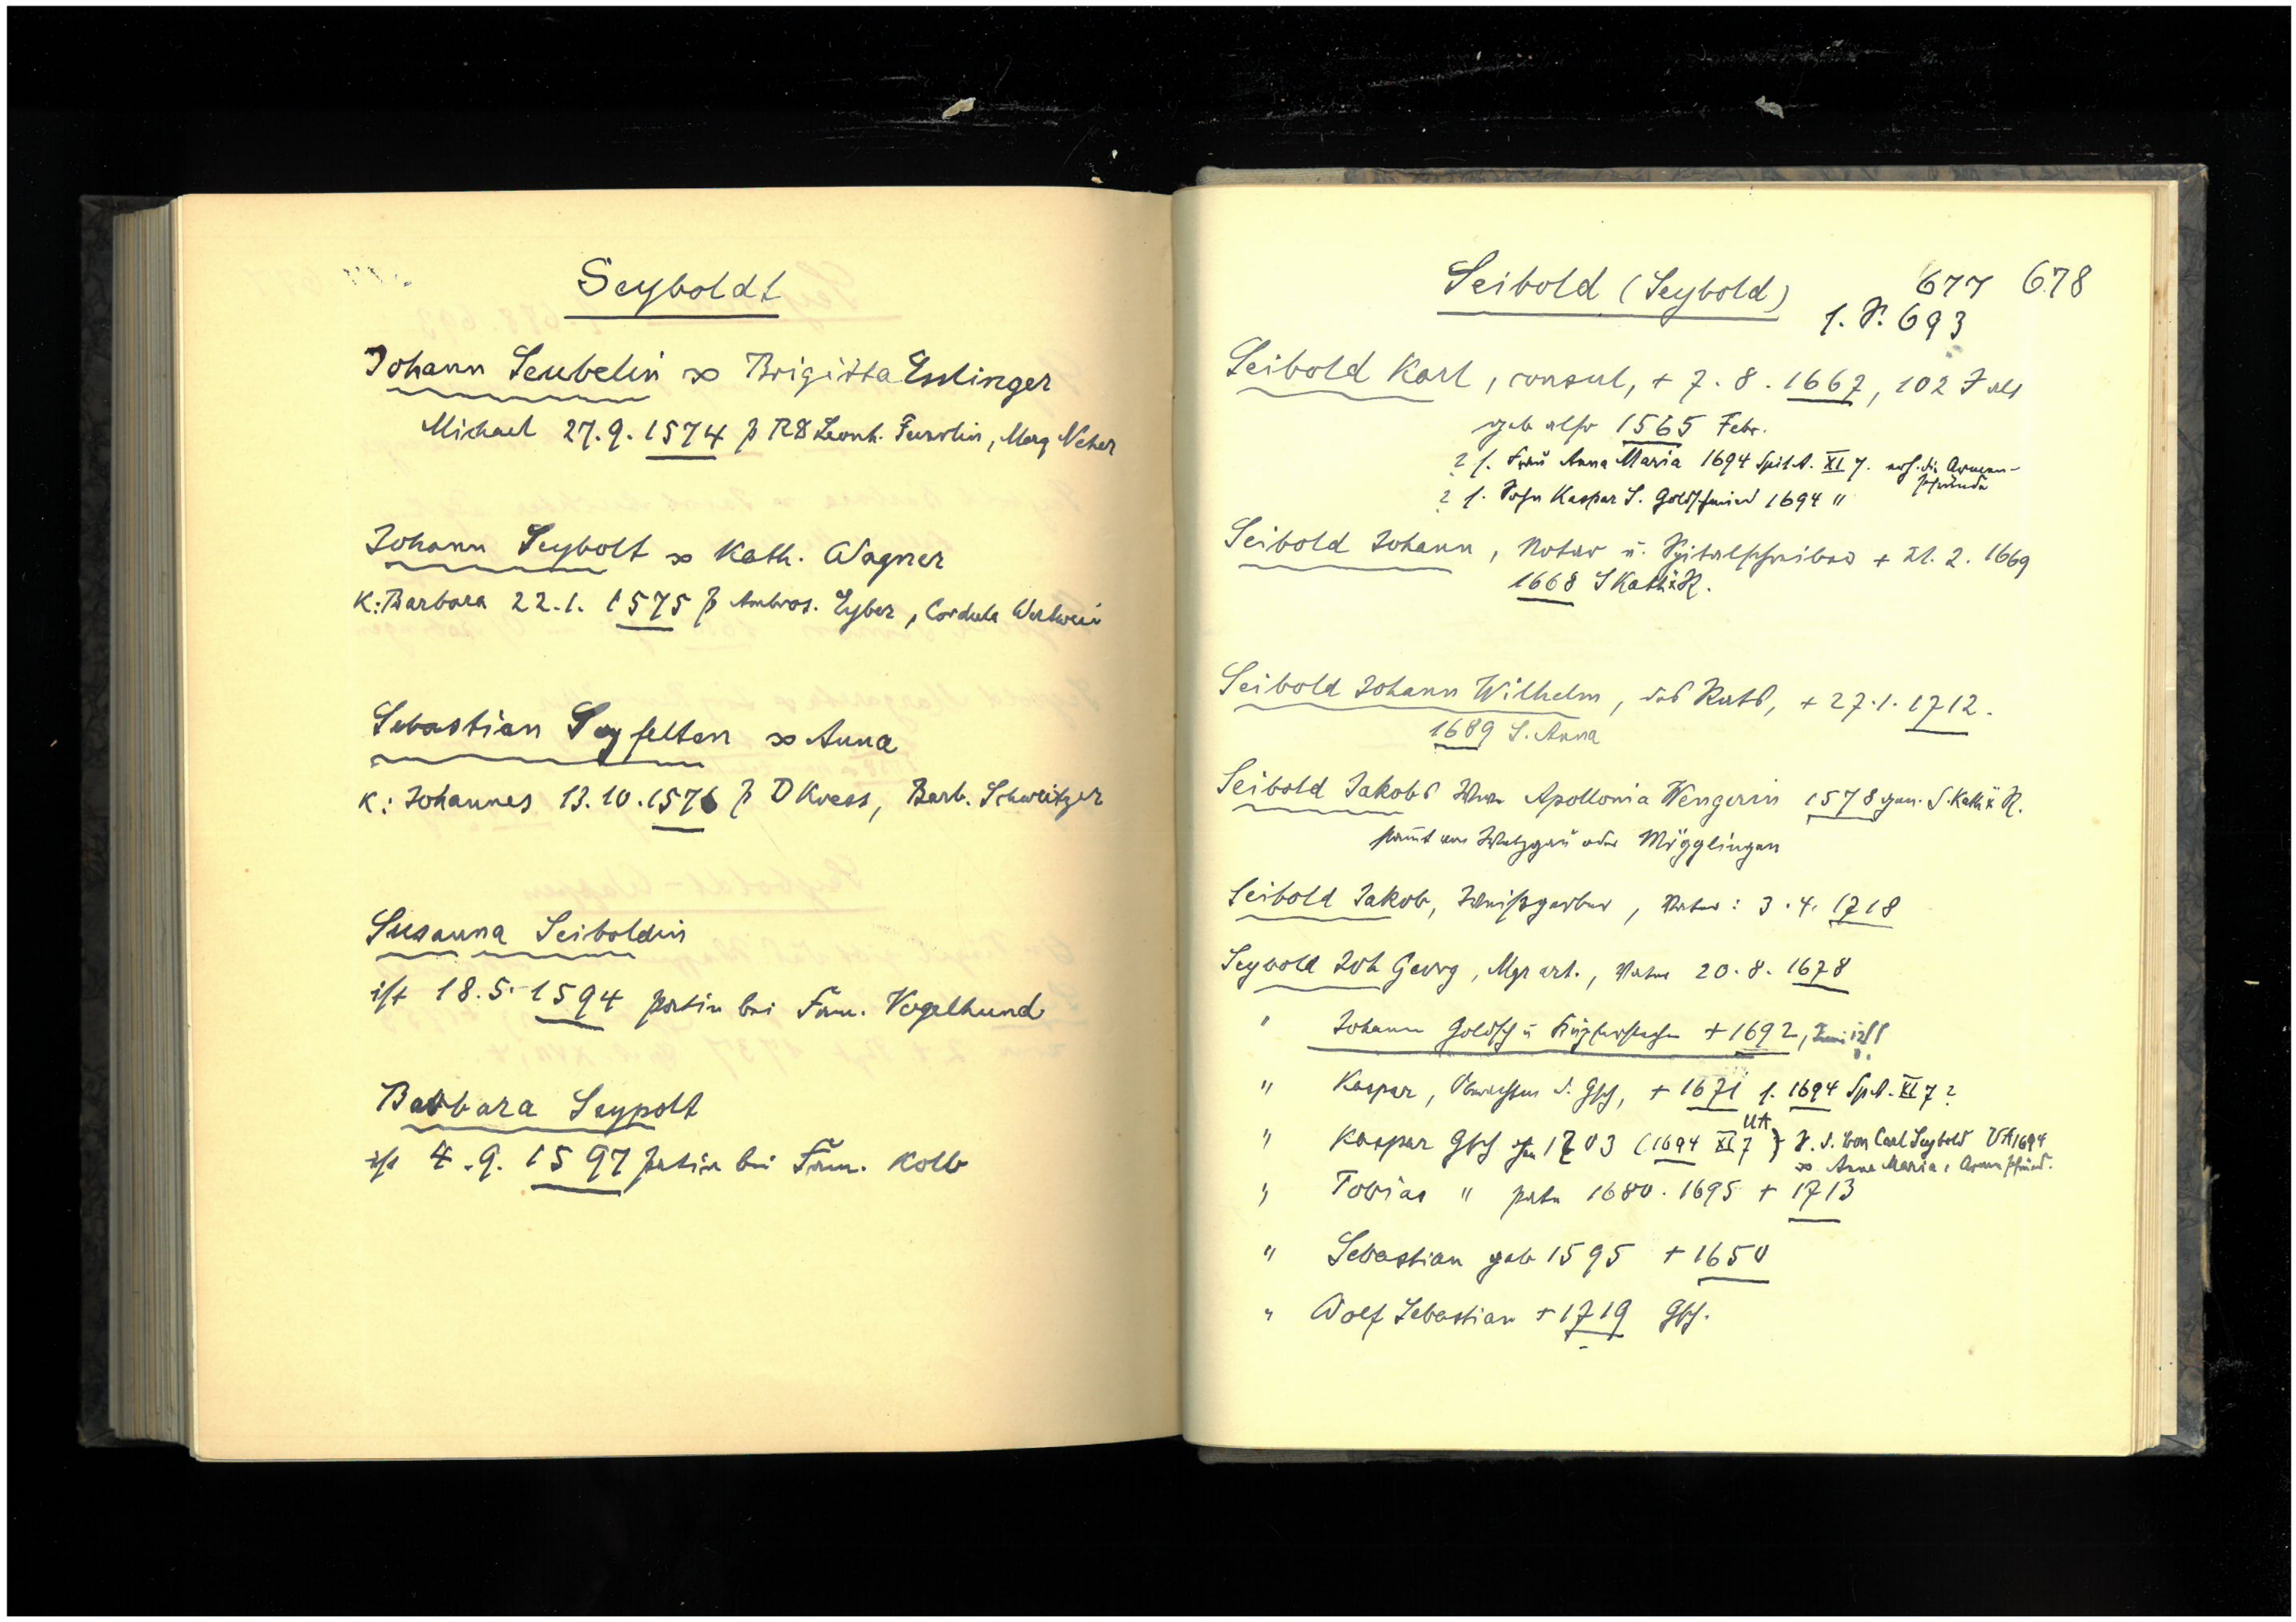 Seyboldt
Johann Seubelin ∞ Brigitta Esslinger
Michael 27.9.1574 p Leonh. Marg Neher
Johann Seybolt ∞ Kath. Wagner
K: Barbara 22.1.1575 p Ambros. Eyber, Cordula
Sebastian Seyfelten ∞ Anna
K: Johannes 13.10.1576 p D Kress, Barb. Schweitzer
Susanna Seiboldin
ist 18.5.1594 patin bei Fam. Vogelhund
Barbara Seypolt
ist 4.9.1597 patin bei Fam. Kolb
Seibold (Seybold) 677 678
s. S. 693
Seibold Karl, consul, + 7.8.1667, 102 J alt
geb also 1565 Febr.
? s. Frau Anna Maria 1694 Spit A. XI 7. erh. die Armen-
pfründe
? s. Sohn Kaspar S. Goldschmied 1694 "
Seibold Johann, Notar u. Spitalschreiber + 21.2.1669
1668 S Kath
Seibold Johann Wilhelm, des Rats, + 27.1.1712.
1689 S. Anna
Seibold Jakobs Witwe Apollonia Wengerin 1578 S. Kath
stammt von Wetzgau oder Mögglingen
Seibold Jakob, Weißgerber, Pate: 3.4.1718
Seybold Joh Georg, Mgr art., Pate 20.8.1678
" Johann Goldsch u Kupferstecher + 1692, Juni
" Kaspar, Gsch, + 1671 s. 1694 Sp A. XI 7?
" Kaspar Gsch 1703 (1694 UA XI 7) S. d. Carl Seybold UA 1694
∞ Anna Maria, Armenpfründ.
" Tobias " pate 1680. 1695 + 1713
" Sebastian geb 1595 + 1650
" Wolf Sebastian + 1719 Gsch.